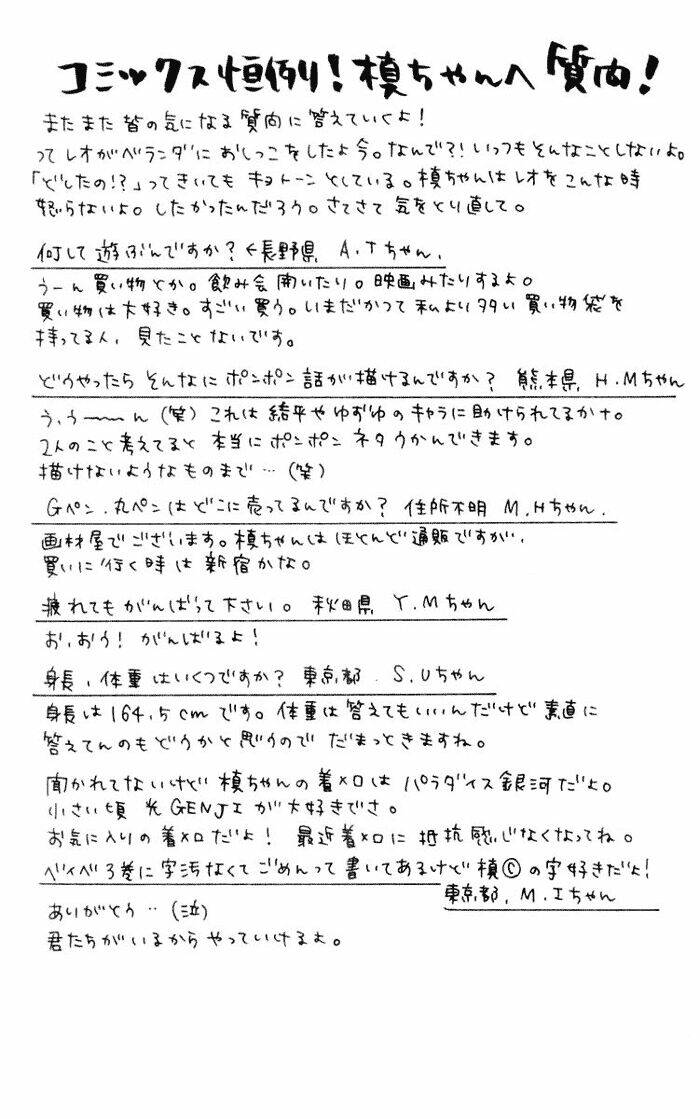 コミックス恒例!槙ちゃんへ質問!
またまた皆の気になる質問に答えていくよ!
ってレオがベランダにおしっこをしたよ今。なんで?!いっつもそんなことしないよ。
「どしたの!?」ってきいてもキョトーンとしている。槙ちゃんはレオをこんな時
怒らないよ。したかったんだろう。さてさて気をとり直して。
何して遊ぶんですか?←長野県 A.Tちゃん.
うーん買い物とか。飲み会開いたり。映画みたりするよ。
買い物は大好き。すごい買う。いまだかつて私より多い買い物袋を
持ってる人、見たことないです。
どうやったらそんなにポンポン話が描けるんですか? 熊本県 H.Mちゃん
う、う〜〜ん(笑)これは結平やゆずゆのキャラに助けられてるかナ。
2人のこと考えてると本当にポンポンネタうかんできます。
描けないようなものまで…(笑)
Gペン.丸ペンはどこに売ってるんですか? 住所不明 M.Hちゃん.
画材屋でございます。槙ちゃんはほとんど通販ですが、
買いに行く時は新宿かな。
疲れてもがんばって下さい。 秋田県 Y.Mちゃん
お、おう!がんばるよ!
身長、体重はいくつですか? 東京都. S.Uちゃん
身長は164.5cmです。体重は答えてもいいんだけど素直に
答えてんのもどうかと思うので だまっときますね。
聞かれてないけど槙ちゃんの着メロはパラダイス銀河だよ。
小さい頃光GENJIが大好きでさ。
お気に入りの着メロだよ! 最近着メロに抵抗感じなくなってね。
ベイベ3巻に字汚なくてごめんって書いてあるけど槙©の字好きだよ!
東京都, M.Iちゃん
ありがとう‥(泣)
君たちがいるからやっていけるよ。